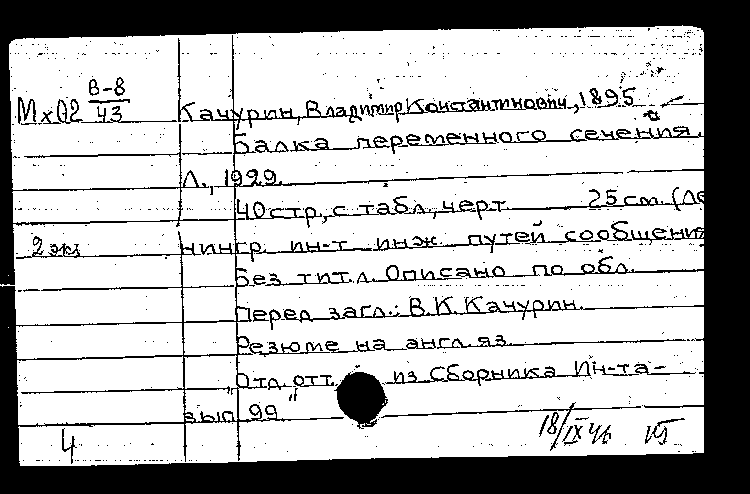 В-8
МхО2 43 Качурин, Владимир Константинович, 1895
Балка переменного сечения.
Л., 1929.
40 стр., с табл., черт. 25 см. (Ле
2 экз нингр. ин-т инж. путей сообщения
Без тит. л. Описано по обл.
Перед загл.: В. К. Качурин.
Резюме на англ. яз.
„Отд. отт. из Сборника Ин-та-
вып 99"
4 18/IX 46